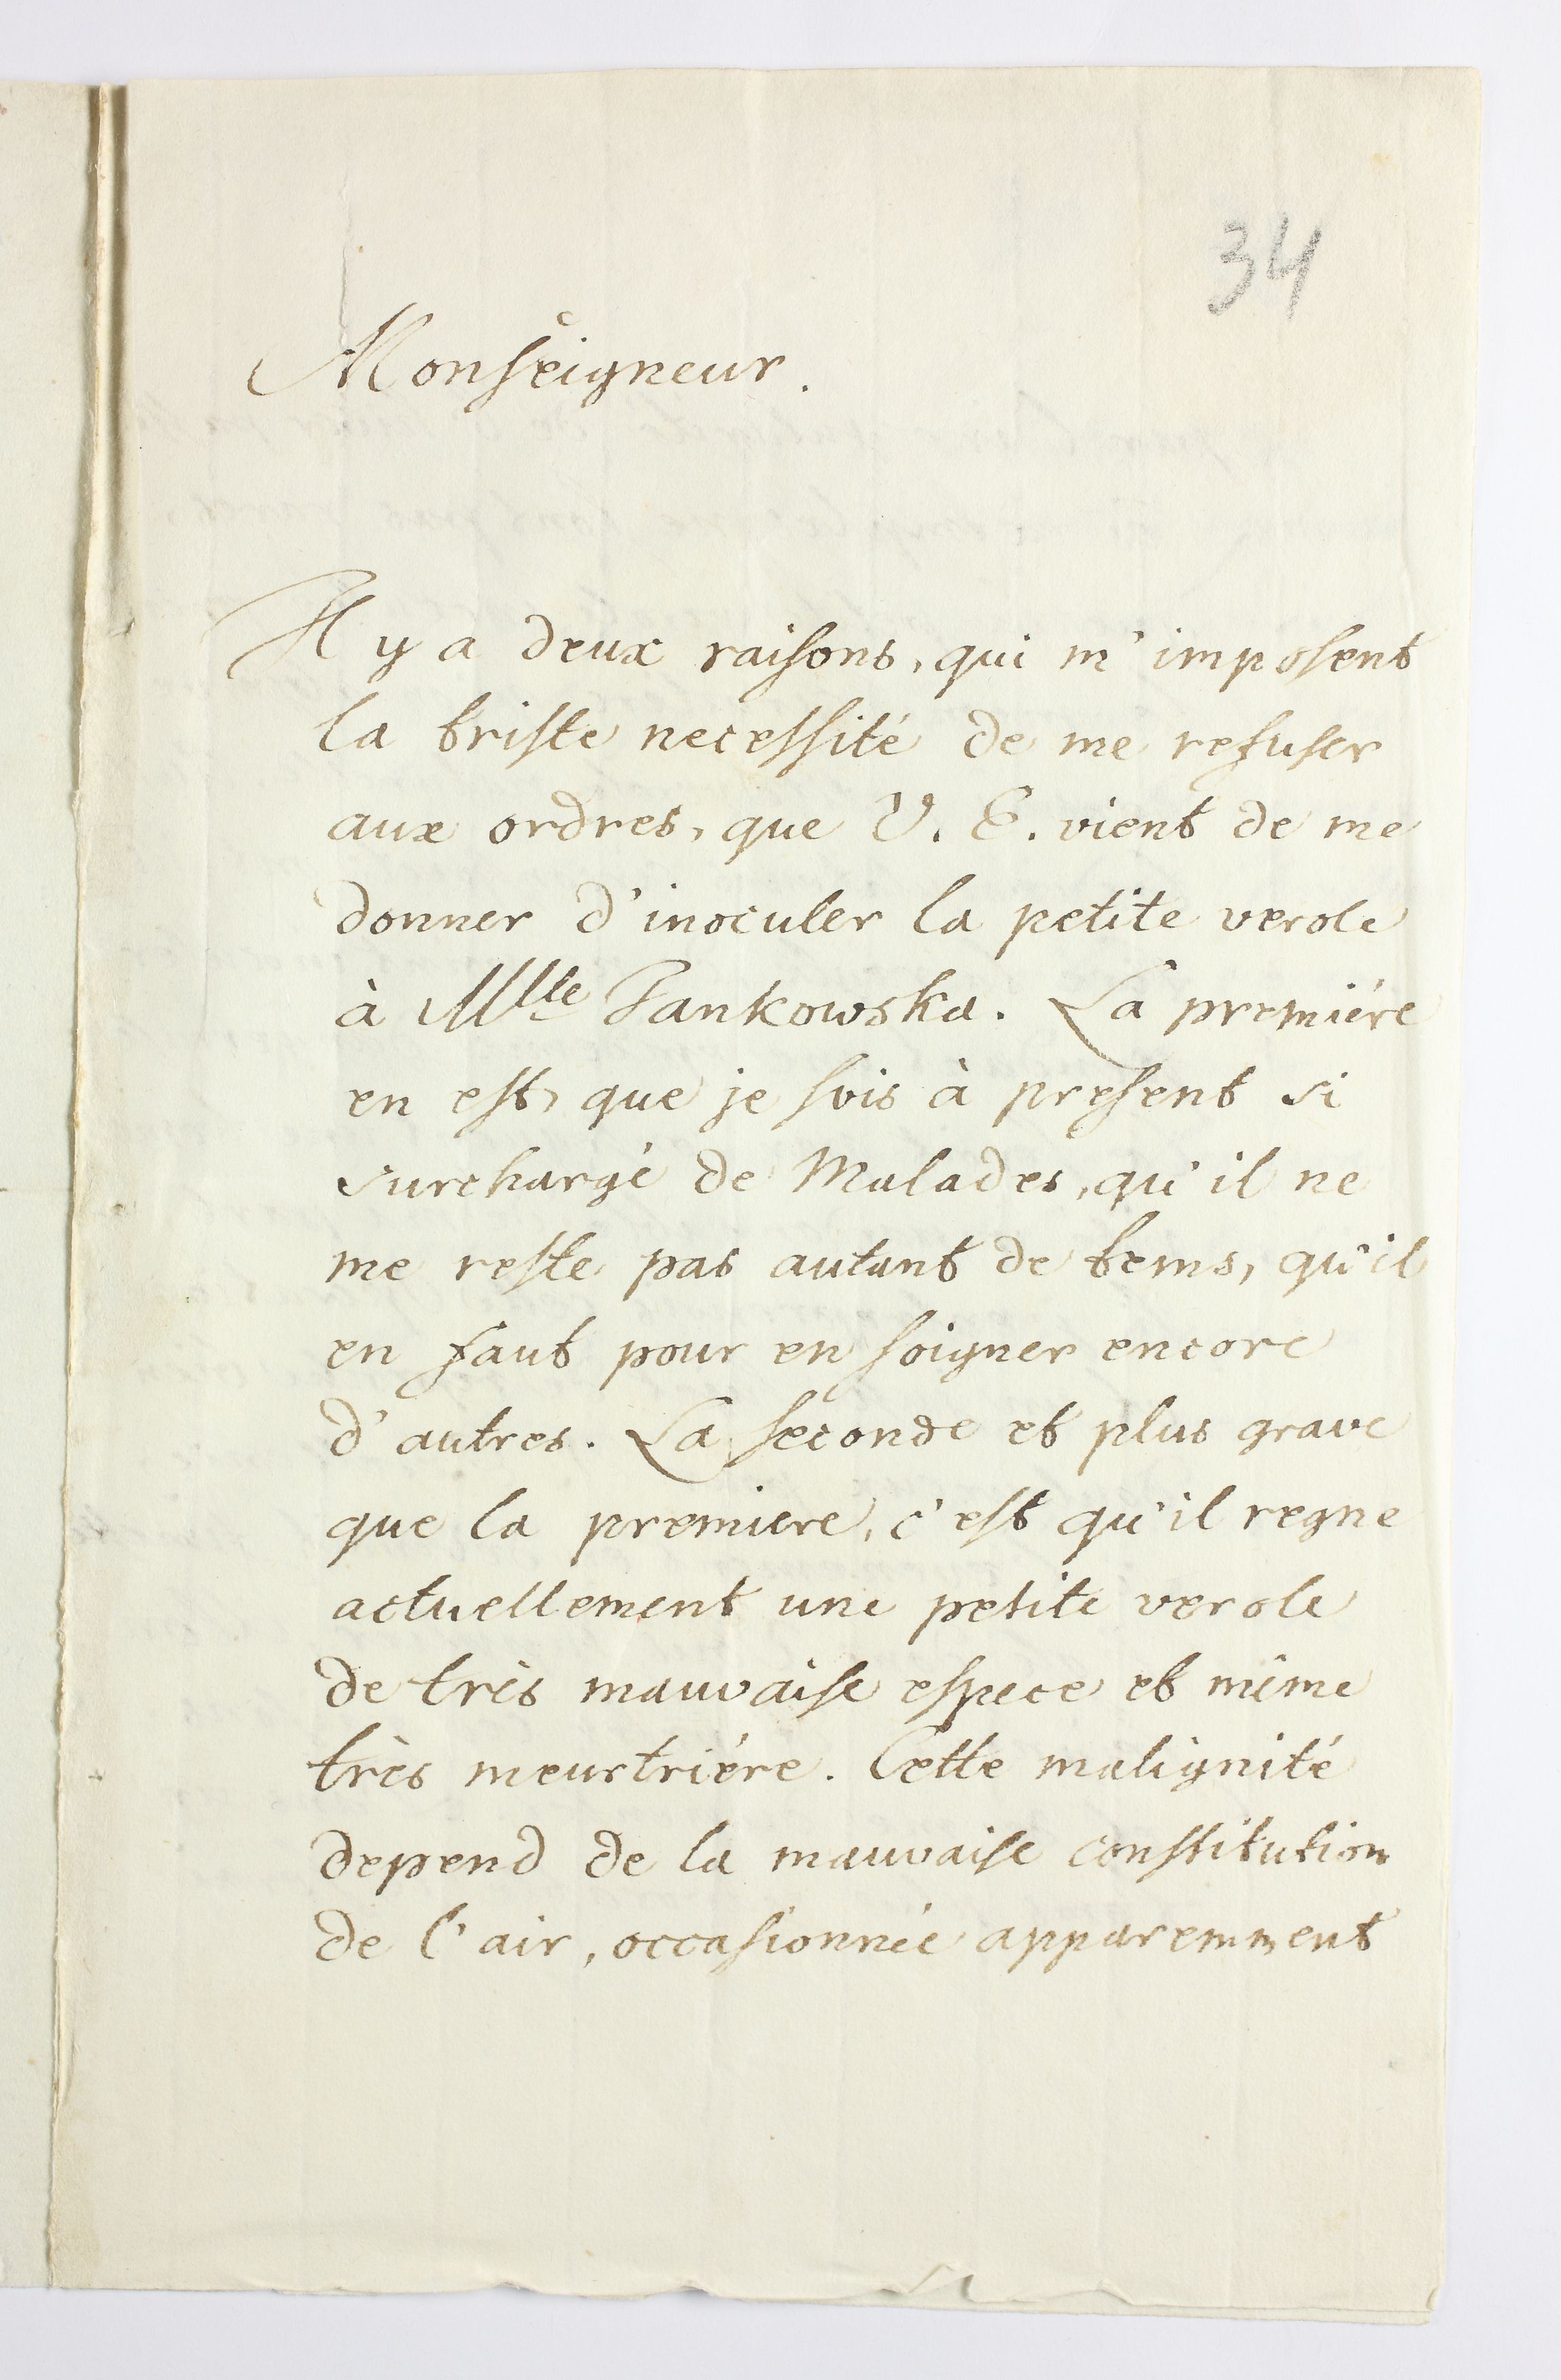 34
Monseigneur.
Il y a deux raisons, qui m'imposent
la triste necessité de me refuser
aux ordres, que V. E. vient de me
donner d'inoculer la petite verole
à Mlle Jankowska. La premiére
en est, que je suis à present si
surchargé de Malades, qu'il ne
me reste pas autant de tems, qu'il
en faut pour en soigner encore
d'autres. La seconde et plus grave
que la premiere, c'est qu'il regne
actuellement une petite verole
de très mauvaise espece et même
très meurtriére. Cette malignité
depend de la mauvaise constitution
de l'air, occasionnée apparemment